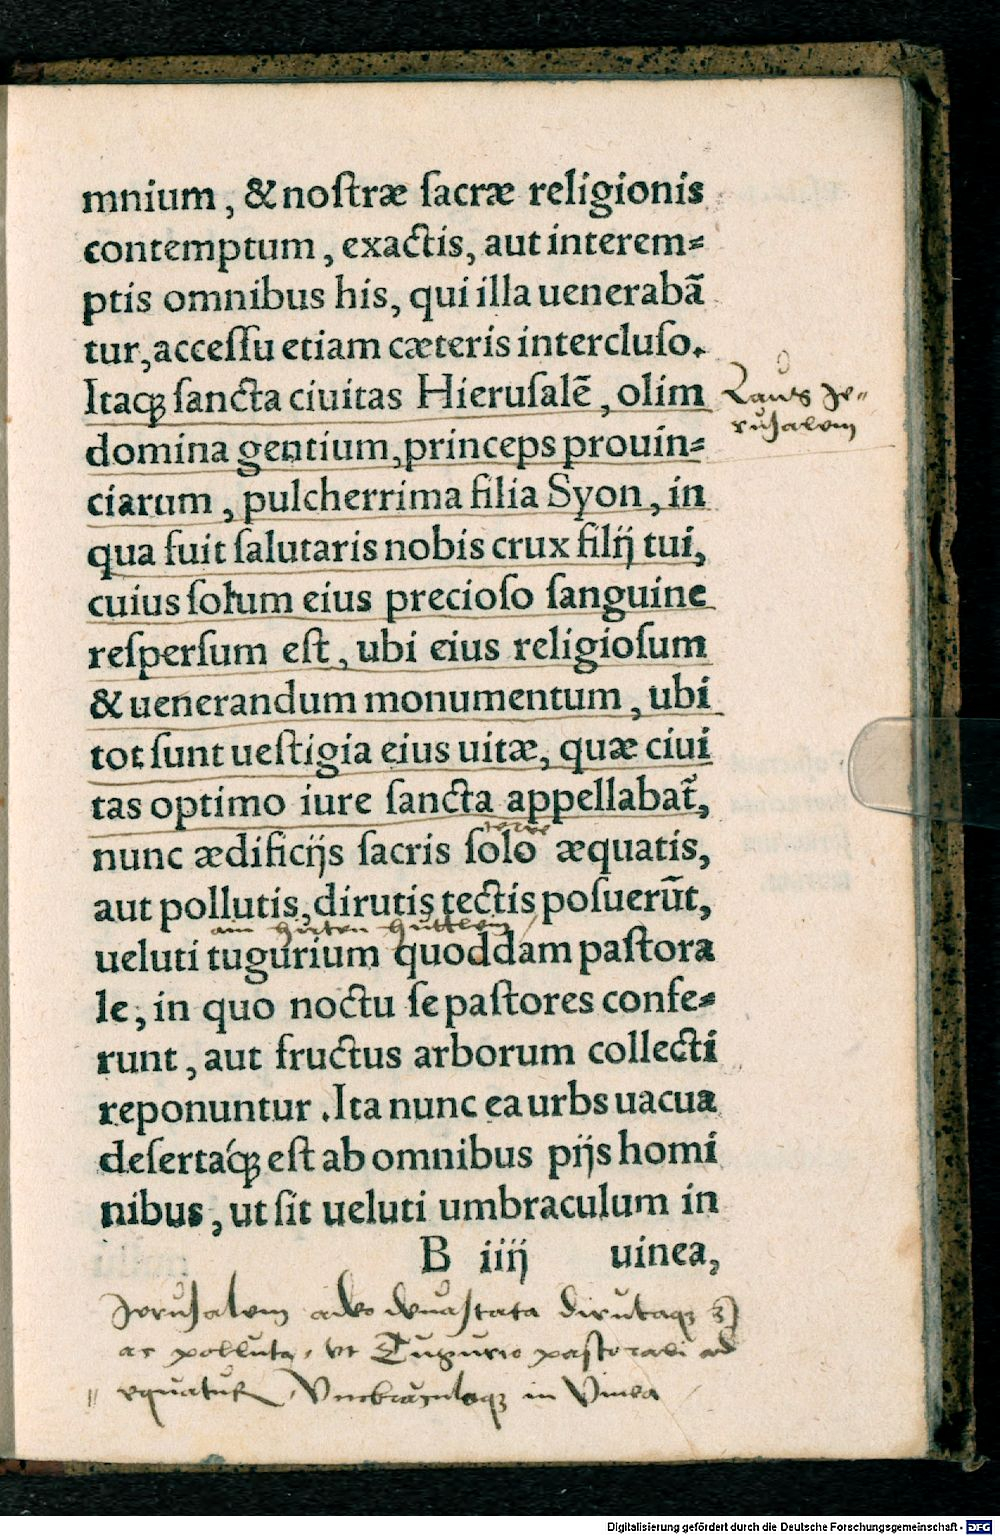 mnium, & nostræ sacræ religionis
contemptum, exactis, aut interem⸗
ptis omnibus his, qui illa uenerabã
tur, accessu etiam cæteris intercluso.
Itaq; sancta ciuitas Hierusalẽ, olim
Laus Je⸗
rusalem
domina gentium, princeps prouin⸗
ciarum, pulcherrima filia Syon, in
qua fuit salutaris nobis crux filij tui,
cuius solum eius precioso sanguine
respersum est, ubi eius religiosum
& uenerandum monumentum, ubi
tot sunt uestigia eius uitæ, quæ ciui
tas optimo iure sancta appellabat̃,
nunc ædificijs sacris solo æquatis,
aut pollutis, dirutis tectis posuerũt,
ain hirten huttlein
ueluti tugurium quoddam pastora
le, in quo noctu se pastores confe⸗
runt, aut fructus arborum collecti
reponuntur. Ita nunc ea urbs uacua
desertáq; est ab omnibus pijs homi
nibus, ut sit ueluti umbraculum in
B iiij uinea,
Jerusalem adeo deuastata dirutaq;
ac polluta, vt Tugurio pastorali ad
equatur, Vmbraculoq; in Vinea
Digitalisierung gefördert durch die Deutsche Forschungsgemeinschaft - DFG